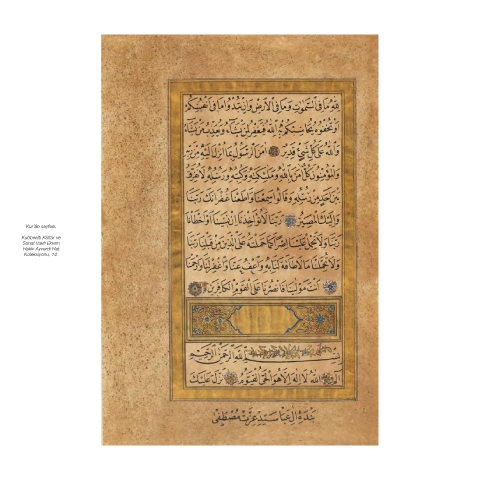 Kur'ân sayfası.
Kubbealtı Kültür ve
Sanat Vakfı Ekrem
Hakkı Ayverdi Hat
Koleksiyonu, 14.
لله ما في السموت وما في الارض وان تبدوا ما في انفسكم
او تخفوه يحاسبكم به الله فيغفر لمن يشاء ويعذب من يشاء
والله على كل شيء قدير امن الرسول بما انزل اليه من ربه
والمؤمنون كل امن بالله وملئكته وكتبه ورسله لا نفرق
بين احد من رسله وقالوا سمعنا واطعنا غفرانك ربنا
واليك المصير ربنا لا تؤاخذنا ان نسينا او اخطأنا
ربنا ولا تحمل علينا اصرا كما حملته على الذين من قبلنا ربنا
ولا تحملنا ما لا طاقة لنا به واعف عنا واغفر لنا وارحمنا
انت مولينا فانصرنا على القوم الكافرين
بسم الله الرحمن الرحيم
الم الله لا اله الا هو الحي القيوم نزل عليك
بنده آل عبا سيد عزت مصطفى